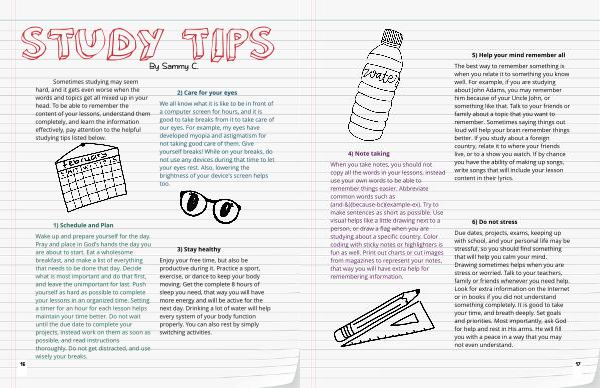 STUDY TIPS
By Sammy C.
Sometimes studying may seem
hard, and it gets even worse when the
words and topics get all mixed up in your
head. To be able to remember the
content of your lessons, understand them
completely, and learn the information
effectively, pay attention to the helpful
studying tips listed below.
FEBRUARY
1) Schedule and Plan
Wake up and prepare yourself for the day.
Pray and place in God's hands the day you
are about to start. Eat a wholesome
breakfast, and make a list of everything
that needs to be done that day. Decide
what is most important and do that first,
and leave the unimportant for last. Push
yourself as hard as possible to complete
your lessons in an organized time. Setting
a timer for an hour for each lesson helps
maintain your time better. Do not wait
until the due date to complete your
projects, instead work on them as soon as
possible, and read instructions
thoroughly. Do not get distracted, and use
wisely your breaks.
2) Care for your eyes
We all know what it is like to be in front of
a computer screen for hours, and it is
good to take breaks from it to take care of
our eyes. For example, my eyes have
developed myopia and astigmatism for
not taking good care of them. Give
yourself breaks! While on your breaks, do
not use any devices during that time to let
your eyes rest. Also, lowering the
brightness of your device's screen helps
too.
3) Stay healthy
Enjoy your free time, but also be
productive during it. Practice a sport,
exercise, or dance to keep your body
moving. Get the complete 8 hours of
sleep you need, that way you will have
more energy and will be active for the
next day. Drinking a lot of water will help
every system of your body function
properly. You can also rest by simply
switching activities.
16
water
4) Note taking
When you take notes, you should not
copy all the words in your lessons, instead
use your own words to be able to
remember things easier. Abbreviate
common words such as
(and-&)(because-bc)(example-ex). Try to
make sentences as short as possible. Use
visual helps like a little drawing next to a
person, or draw a flag when you are
studying about a specific country. Color
coding with sticky notes or highlighters is
fun as well. Print out charts or cut images
from magazines to represent your notes,
that way you will have extra help for
remembering information.
5) Help your mind remember all
The best way to remember something is
when you relate it to something you know
well. For example, if you are studying
about John Adams, you may remember
him because of your Uncle John, or
something like that. Talk to your friends or
family about a topic that you want to
remember. Sometimes saying things out
loud will help your brain remember things
better. If you study about a foreign
country, relate it to where your friends
live, or to a show you watch. If by chance
you have the ability of making up songs,
write songs that will include your lesson
content in their lyrics.
6) Do not stress
Due dates, projects, exams, keeping up
with school, and your personal life may be
stressful, so you should find something
that will help you calm your mind.
Drawing sometimes helps when you are
stress or worried. Talk to your teachers,
family or friends whenever you need help.
Look for extra information on the Internet
or in books if you did not understand
something completely. It is good to take
your time, and breath deeply. Set goals
and priorities. Most importantly, ask God
for help and rest in His arms. He will fill
you with a peace in a way that you may
not even understand.
17